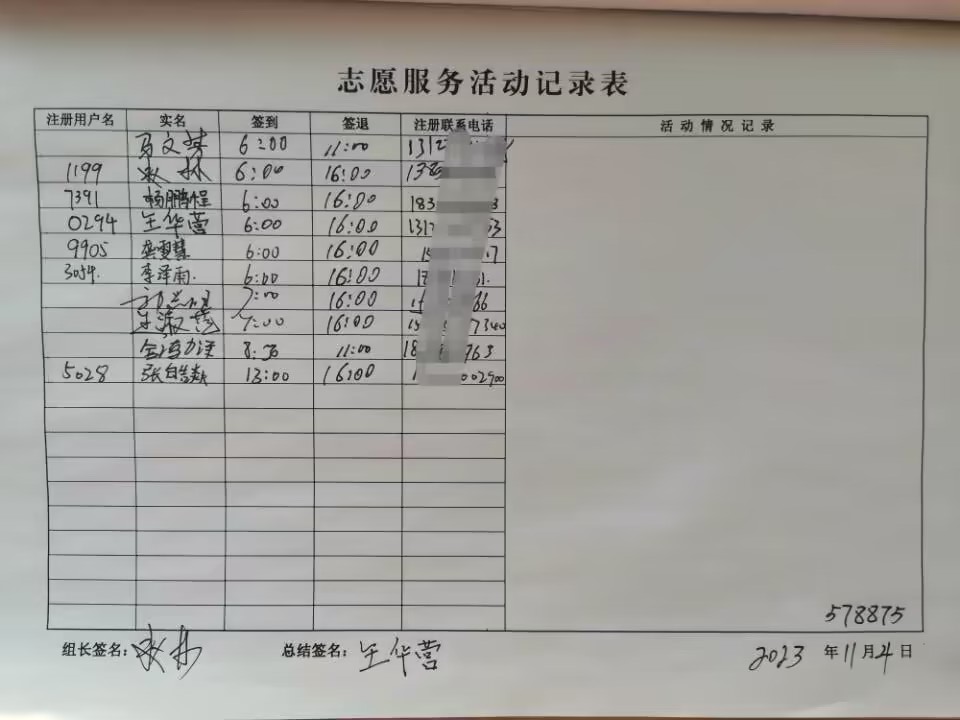 志愿服务活动记录表
注册用户名 实名 签到 签退 注册联系电话 活动情况记录
马文 6:00 11:00 1312
1199 耿林 6:00 16:00 138
7391 杨鹏程 6:00 16:00 183 3
0294 王华营 6:00 16:00 131 53
9905 6:00 16:00 7
3054. 李泽雨. 6:00 16:00 1.
7:00 16:00 66
7:00 16:00 7340
8:30 11:00 18 763
5028 张 13:00 16:00 1 002900
578875
组长签名: 耿林 总结签名: 王华营 2023 年 11 月 4 日